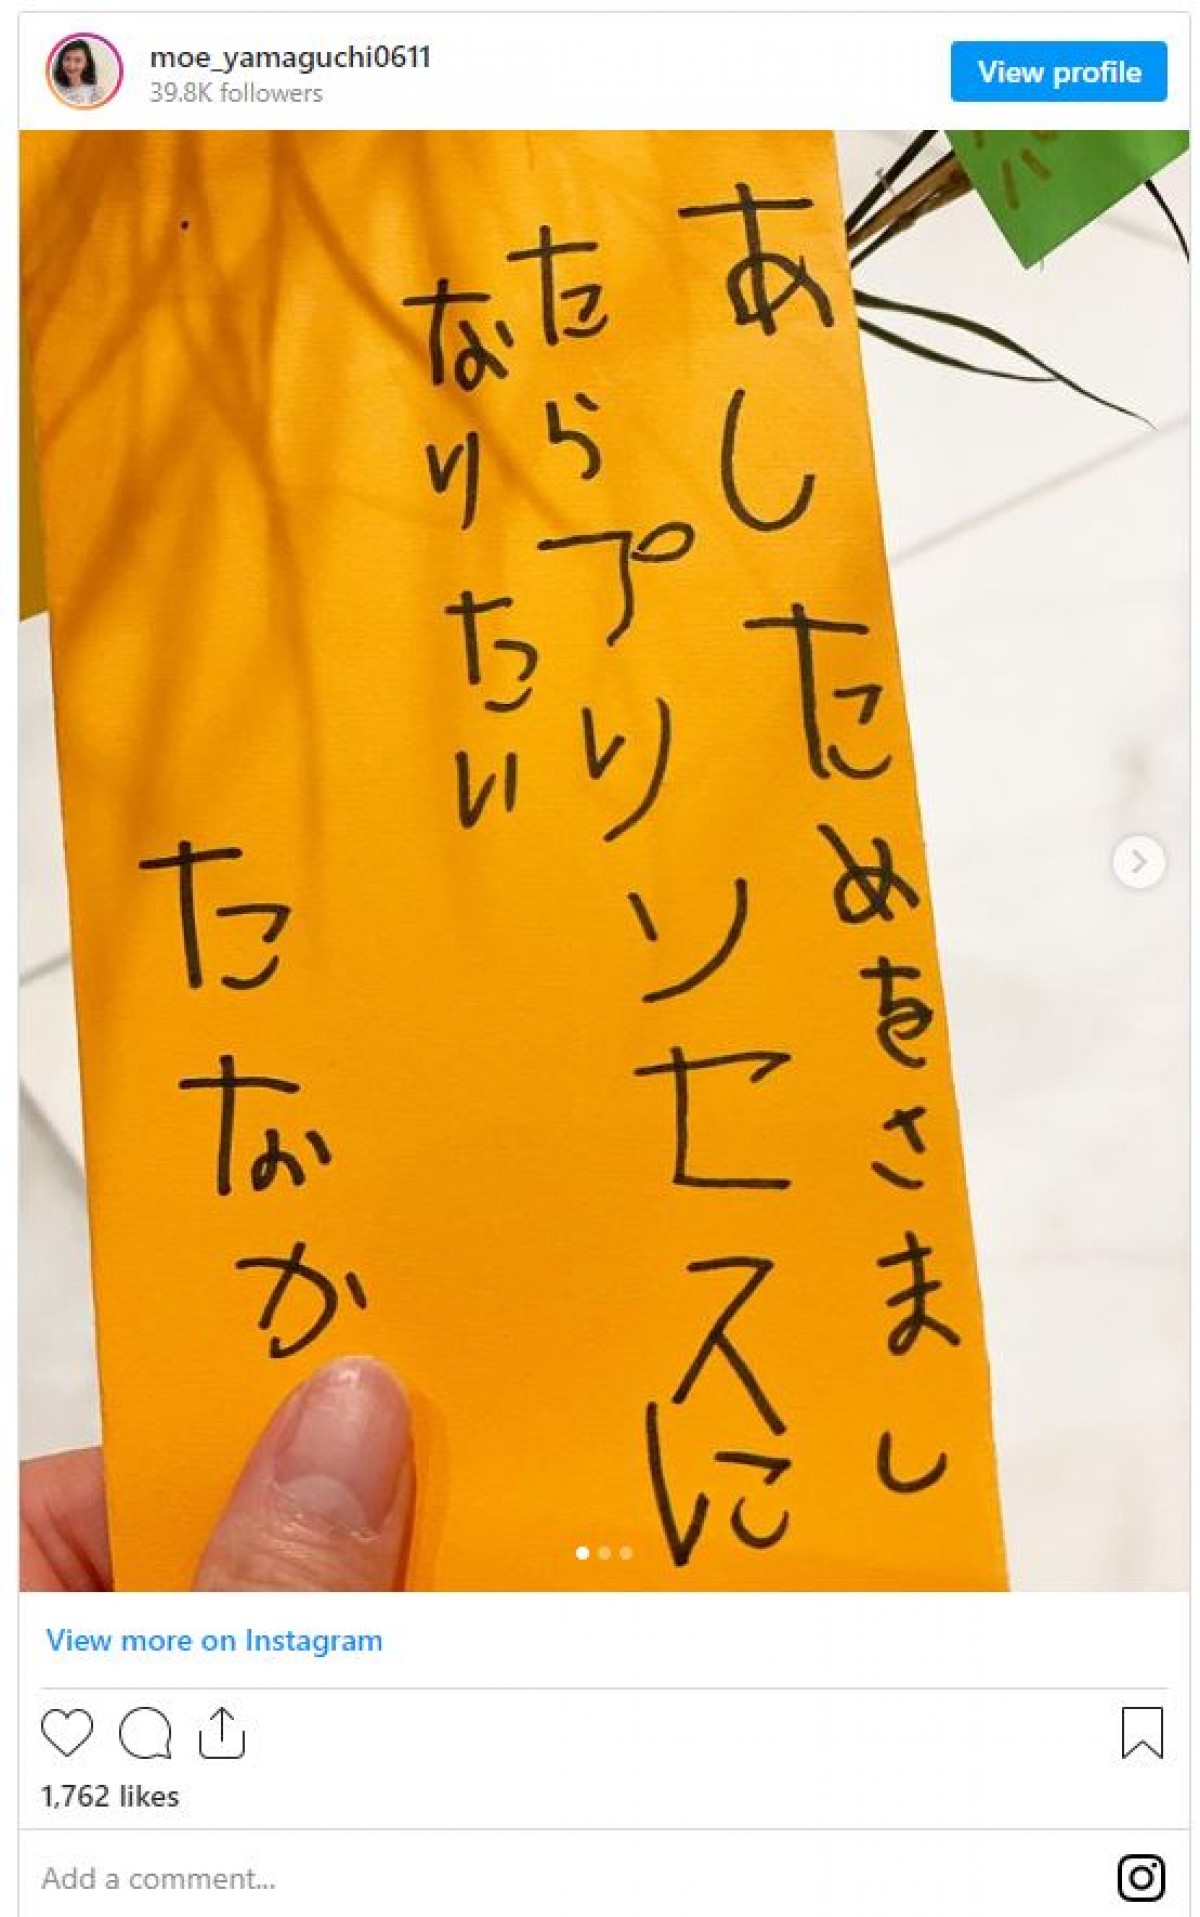 moe_yamaguchi0611
39.8K followers
View profile
あしためをさまし
たらプリンセスに
なりたい
たなか
View more on Instagram
1,762 likes
Add a comment...